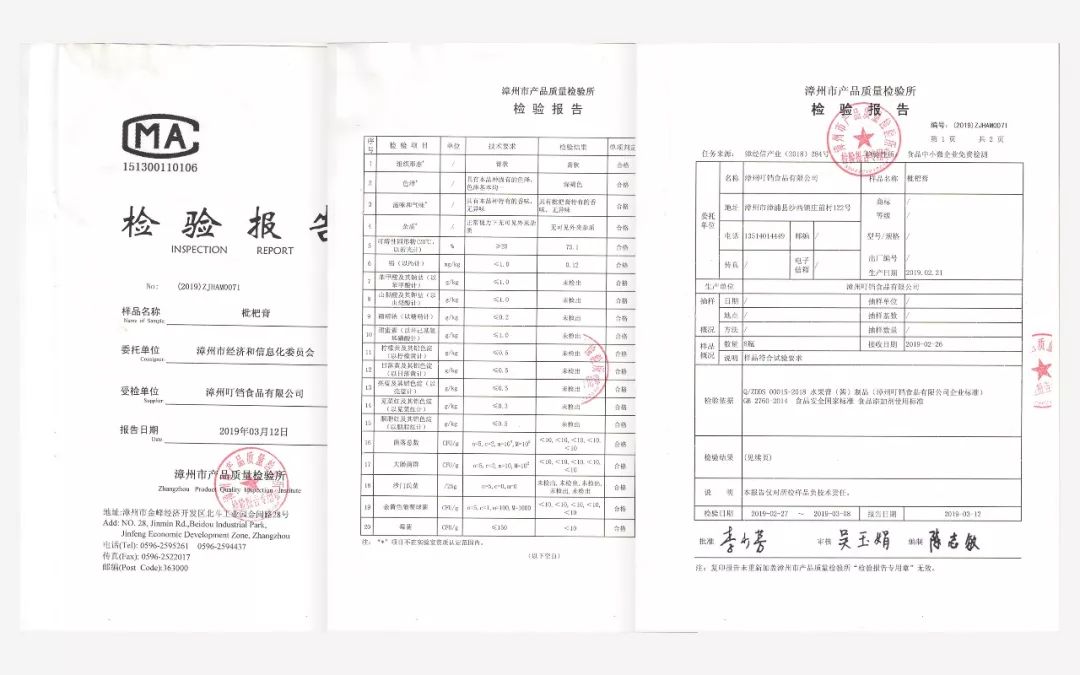 MA
151300110106
检验报告
INSPECTION REPORT
No: (2019)ZJHAWO071
样品名称 枇杷膏
Name of Sample
委托单位 漳州市经济和信息化委员会
Consigner
受检单位 漳州叮铛食品有限公司
Supplier
报告日期 2019年03月12日
Date
漳州市产品质量检验所
Zhangzhou Product Quality Inspection Institute
地址:漳州市金峰经济开发区北斗工业园金闽路28号
Add: NO. 28, Jinmin Rd.,Beidou Industrial Park,
Jinfeng Economic Development Zone, Zhangzhou
电话(Tel): 0596-2595261 0596-2594437
传真(Fax): 0596-2522017
邮编(Post Code):363000
漳州市产品质量检验所
检验报告
序号 检验项目 单位 技术要求 检验结果 单项判定
1 组织形态* / 膏状 膏状 合格
2 色泽* / 具有本品种应有的色泽,色泽基本均 合格
3 滋味和气味* / 具有本品种特有的香味,无异味 具有枇杷膏特有的香味,无异味 合格
4 杂质* / 正常视力下无可见外来杂质 无可见外来杂质 合格
5 可溶性固形物(20℃,以折光计) % ≥20 73.1 合格
6 铅(以Pb计) mg/kg ≤1.0 0.12 合格
7 苯甲酸及其钠盐(以苯甲酸计) g/kg ≤1.0 未检出 合格
8 山梨酸及其钾盐(以山梨酸计) g/kg ≤1.0 未检出 合格
9 糖精钠(以糖精计) g/kg ≤0.2 未检出 合格
10 甜蜜素(以环己基氨基磺酸计) g/kg ≤1.0 未检出 合格
11 柠檬黄及其铝色淀(以柠檬黄计) g/kg ≤0.5 未检出 合格
12 日落黄及其铝色淀(以日落黄计) g/kg ≤0.5 未检出 合格
13 亮蓝及其铝色淀(以亮蓝计) g/kg ≤0.5 未检出 合格
14 苋菜红及其铝色淀(以苋菜红计) g/kg ≤0.3 未检出 合格
15 胭脂红及其铝色淀(以胭脂红计) g/kg ≤0.3 未检出 合格
16 菌落总数 CFU/g <10, <10, <10, <10, <10 合格
17 大肠菌群 CFU/g n=5,c=2,m=10,M=10² <10, <10, <10, <10, <10 合格
18 沙门氏菌 /25g n=5,c=0,m=0 未检出, 未检出, 未检出, 未检出, 未检出 合格
19 金黄色葡萄球菌 CFU/g n=5,c=1,m=100,M=1000 <10, <10, <10, <10, <10 合格
20 霉菌 CFU/g ≤150 <10 合格
注: "*"项目不在实验室资质认定范围内。
(以下空白)
漳州市产品质量检验所
检验报告
编号: (2019)ZJHAWO071
第 1 页 共 2 页
任务来源: 漳经信产业〔2018〕284号 检验性质: 食品中小微企业免费检测
委托单位 名称 漳州叮铛食品有限公司 样品名称 枇杷膏
地址 漳州市漳浦县沙西镇庄前村122号 商标 /
等级 /
电话 13514014449 邮编 / 型号/规格 /
传真 / 电子信箱 / 出厂编号 /
生产日期 2019.02.21
生产单位 漳州叮铛食品有限公司
抽样概况 日期 / 抽样单位 /
地点 / 抽样基数 /
方法 / 抽样数量 /
样品概况 数量 8瓶 接收日期 2019-02-26
说明 样品符合试验要求
检验依据 Q/ZDDS 0001S-2018 水果膏(酱)制品(漳州叮铛食品有限公司企业标准)
GB 2760-2014 食品安全国家标准 食品添加剂使用标准
检验结果 (见续页)
说 明 本报告仅对所检样品负技术责任。
检验日期 2019-02-27 ~ 2019-03-08 报告日期 2019-03-12
批准 审核 吴玉娟 编制 陈志敏
注: 复印报告未重新加盖漳州市产品质量检验所"检验报告专用章"无效。